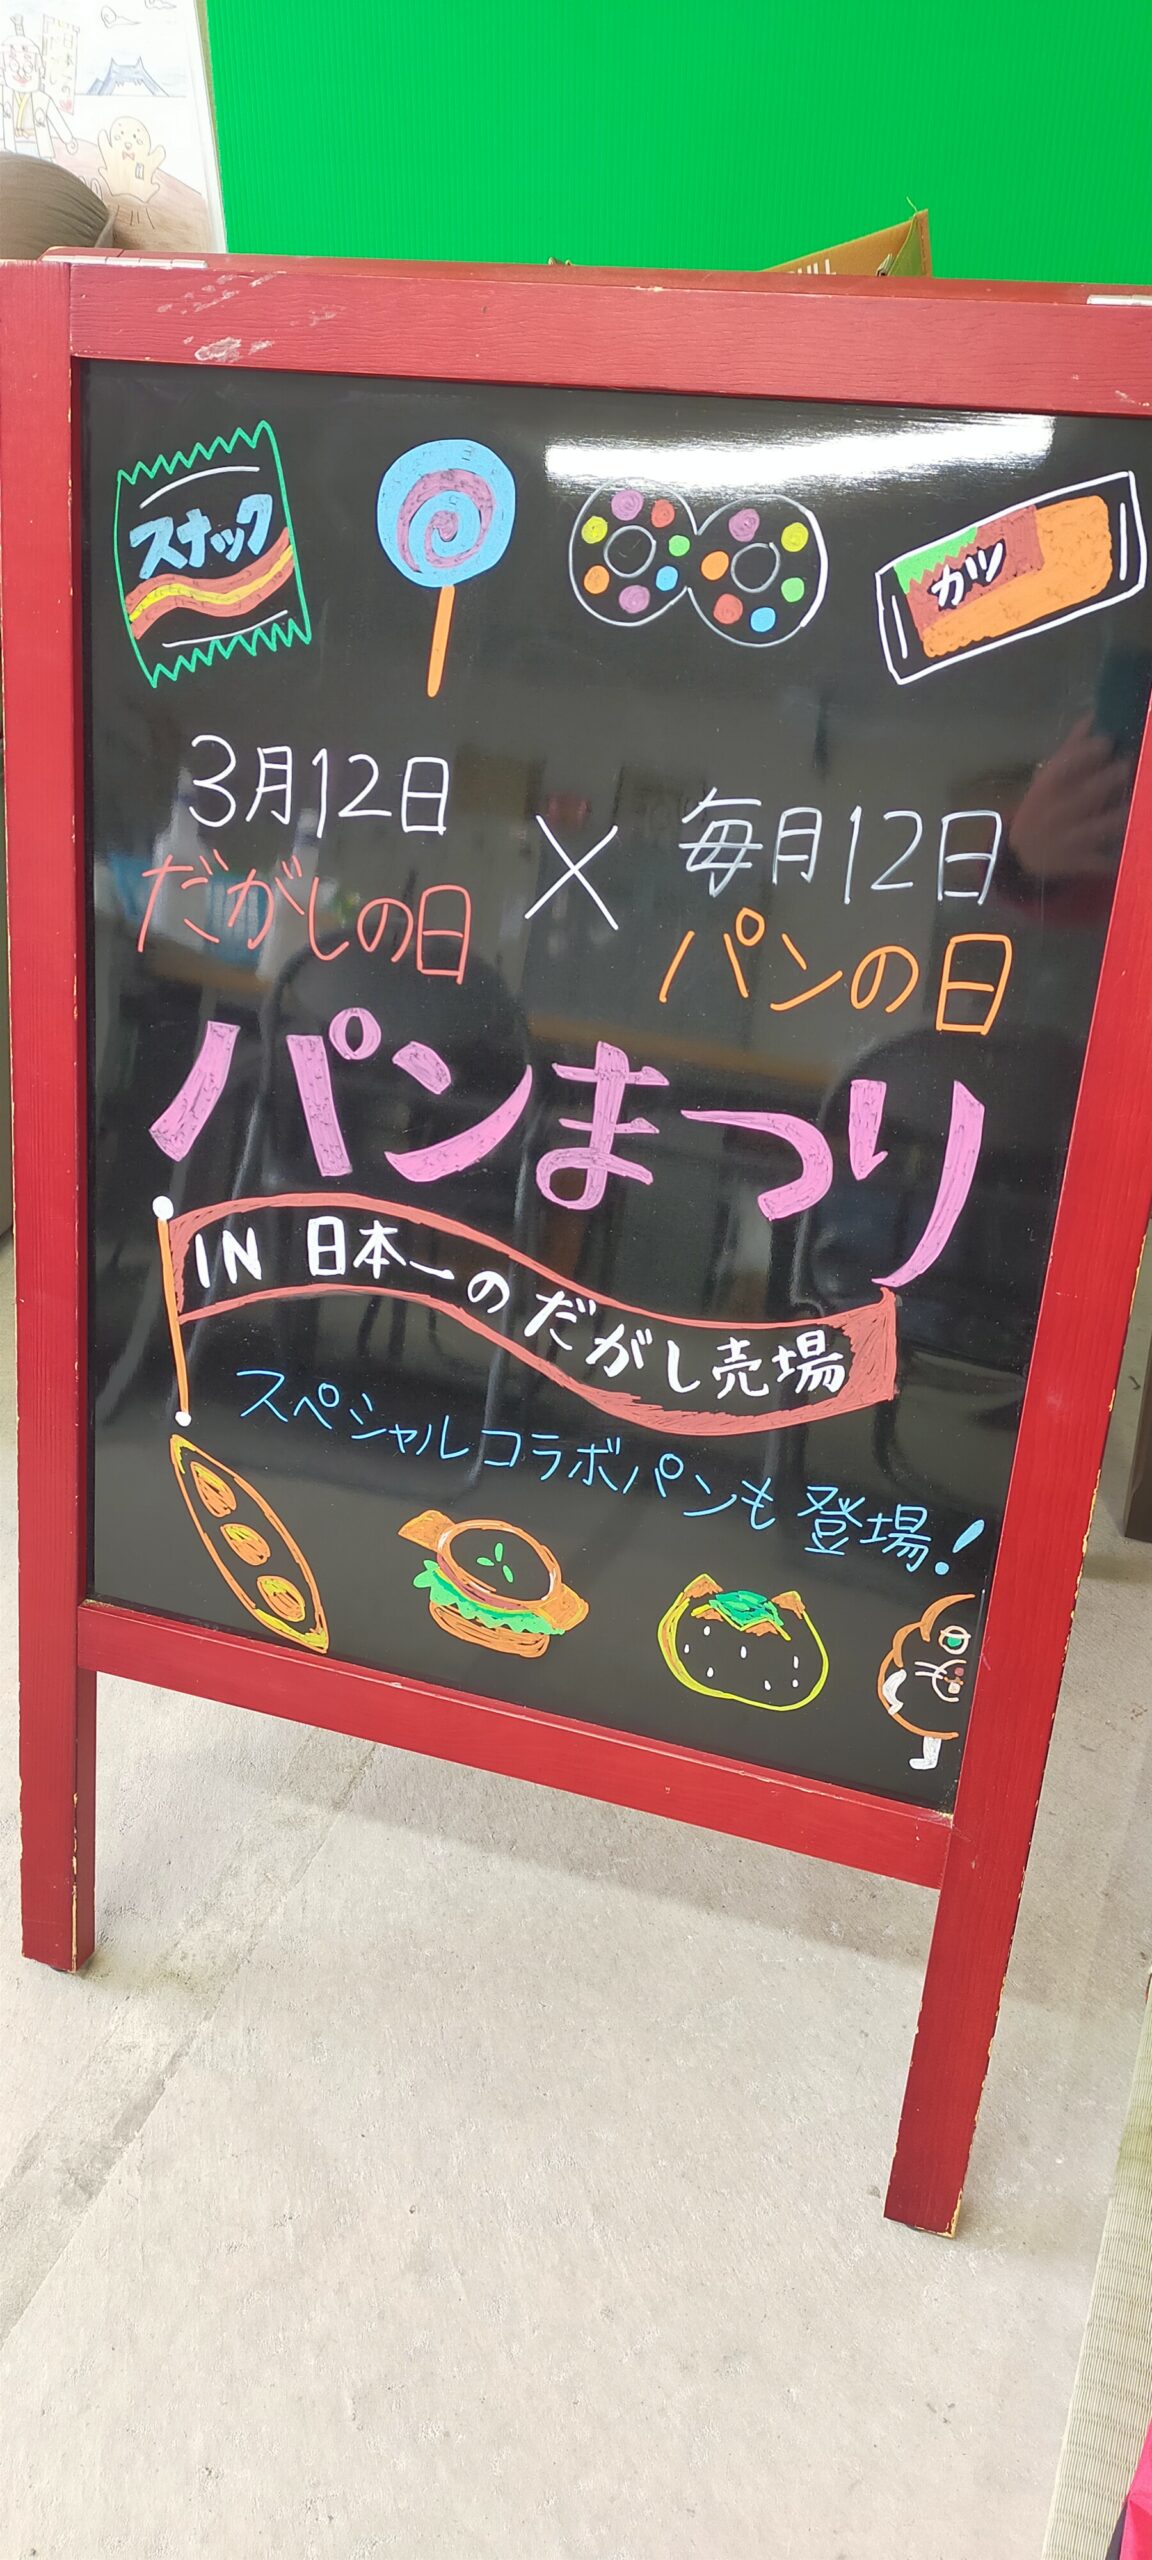 スナック
カツ
3月12日 × 毎月12日
だがしの日 パンの日
パンまつり
IN 日本一のだがし売場
スペシャルコラボパンも登場!